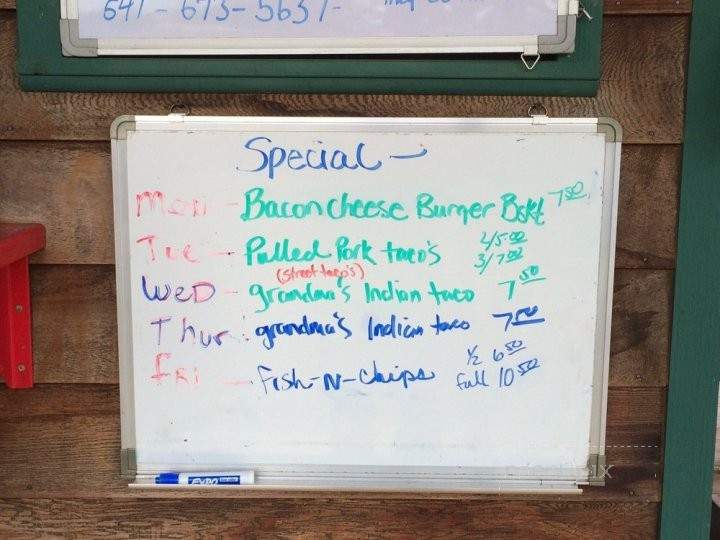 641-673-5637-
Special -
Mon - Bacon cheese Burger Bskt 7 50
Tue - Pulled Pork taco's 2/5.00
(street taco's) 3/7 00
WeD - grandma's Indian taco 7 50
Thur: grandma's Indian taco 7 50
fri - Fish-N-chips ½ 6 50
full 10 50
EXPO